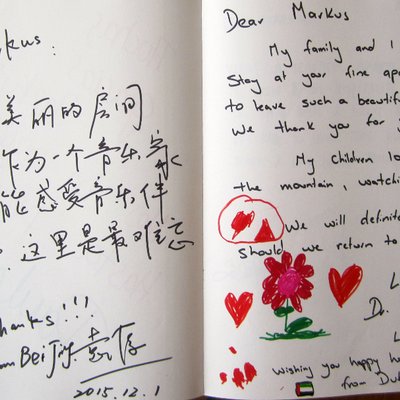 rkus:
美丽的房间
作为一个音乐家
能感受音乐伴
这里是最难忘
Thanks!!!
from Beijing
2015.12.1
Dear Markus
My family and I
stay at your fine apa
to leave such a beautif
We thank you for y
My children lo
the mountain, watchi
We will definite
should we return to
L
Dr.
L
Wishing you happy h
from Dub